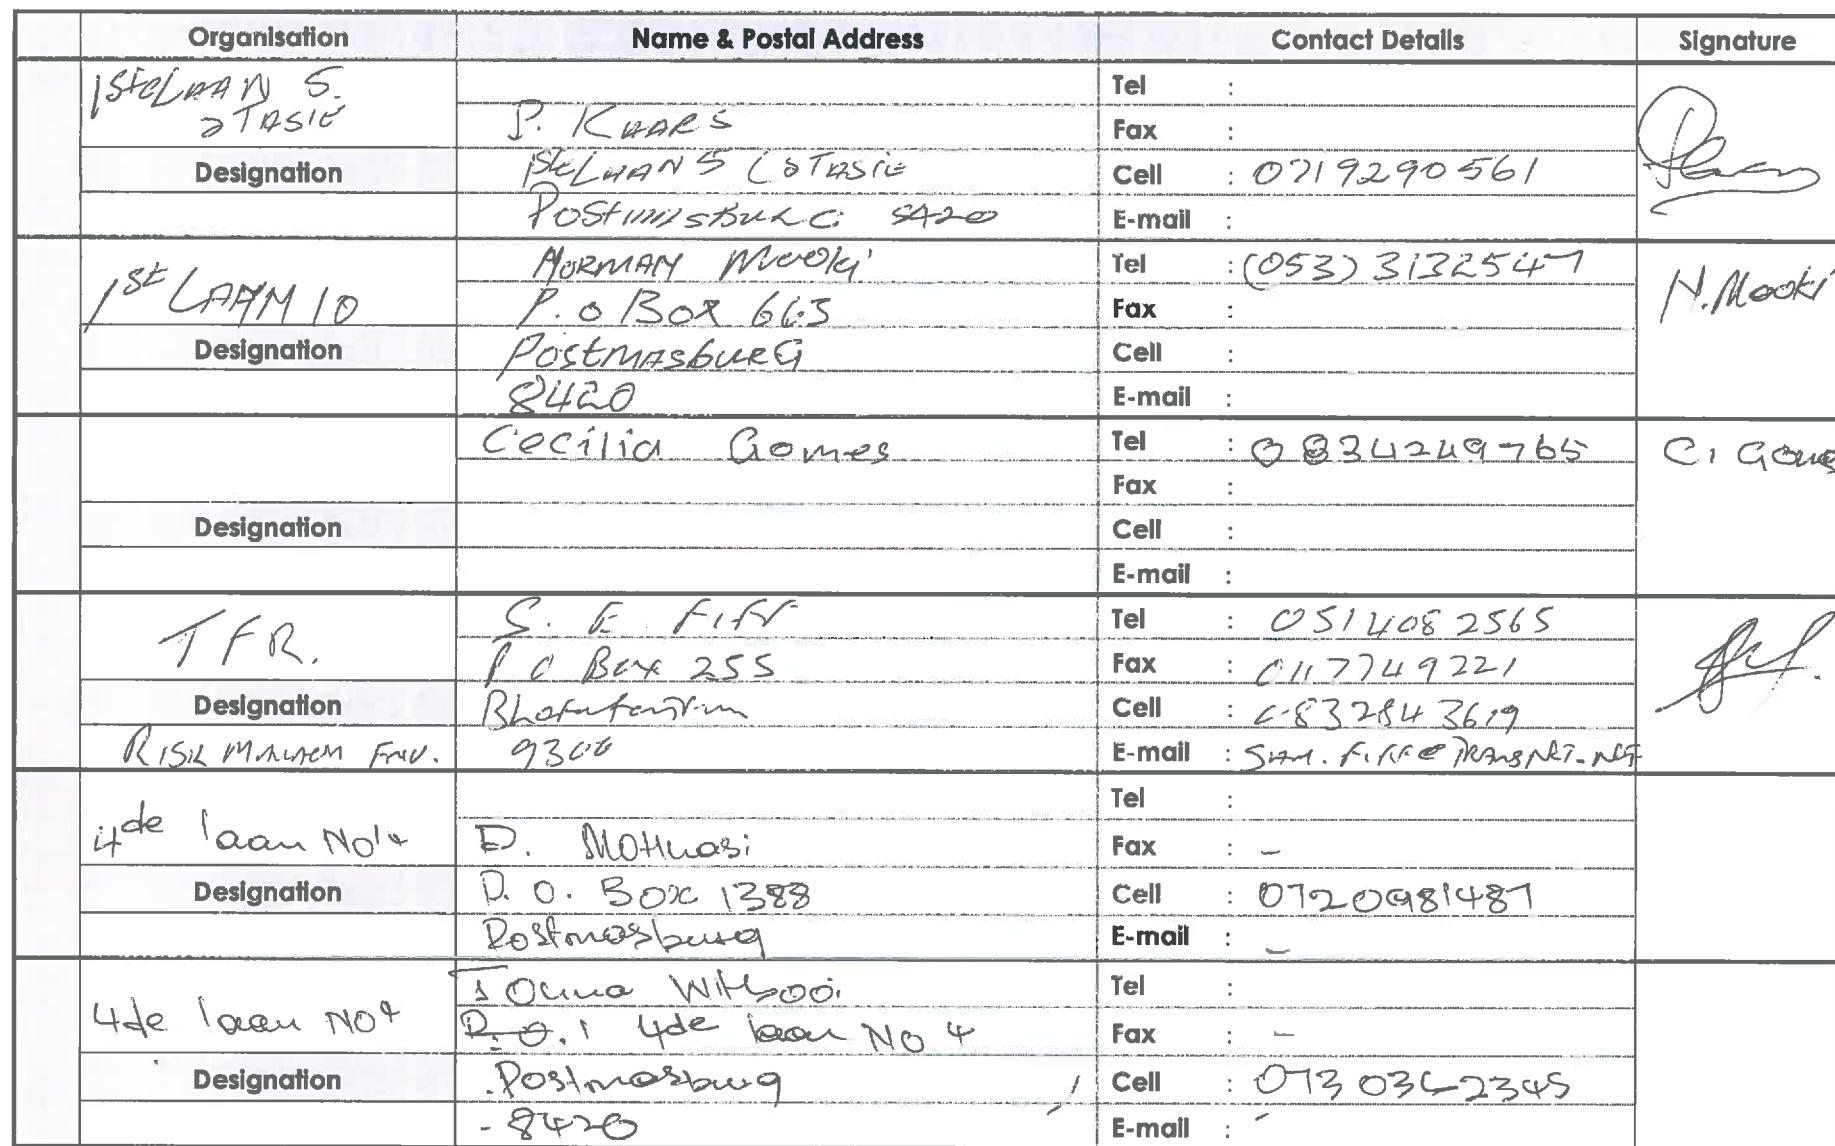 Organisation Name & Postal Address Contact Details Signature
1steLaan 5. Tel :
STASIE P. KHARS Fax :
Designation 1steLaan 5 STASIE Cell : 0719290561
POSTMASBURG 8420 E-mail :
NORMAN Mooki Tel : (053) 3132547 N. Mooki
1st LAAN 10 P. o Box 663 Fax :
Designation POSTMASBURG Cell :
8420 E-mail :
Cecilia Gomes Tel : 0834249765 C. Gomes
Fax :
Designation Cell :
E-mail :
TFR. S. E. FIFF Tel : 0514082565
P O Box 255 Fax : 0117749221
Designation Bloemfontein Cell : 0832843619
RISK MANAGEM ENV. 9300 E-mail :
Tel :
4de laan No 4 D. MOTHUASI Fax : -
Designation P. O. Box 1388 Cell : 0720981487
Postmasburg E-mail : -
Witbooi Tel :
4de laan NO4 P.O. 4de laan No 4 Fax : -
Designation Postmasburg Cell :
- 8420 E-mail : -